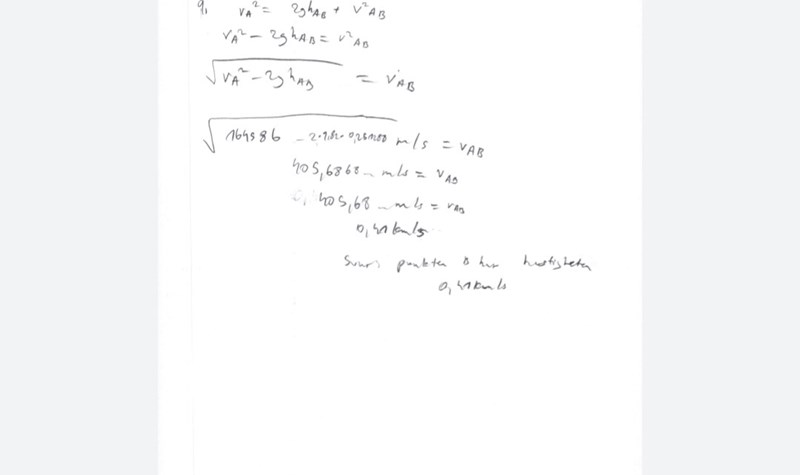 9. v_A² = 2gh_AB + v²_AB
v_A² - 2gh_AB = v²_AB
√(v_A² - 2gh_AB) = v_AB
√(164586 - 2·9,82· m/s = v_AB
405,6868 m/s = v_AB
405,68 m/s = v_AB
0,41 km/s
Svar: punkten B har hastigheten
0,41 km/s